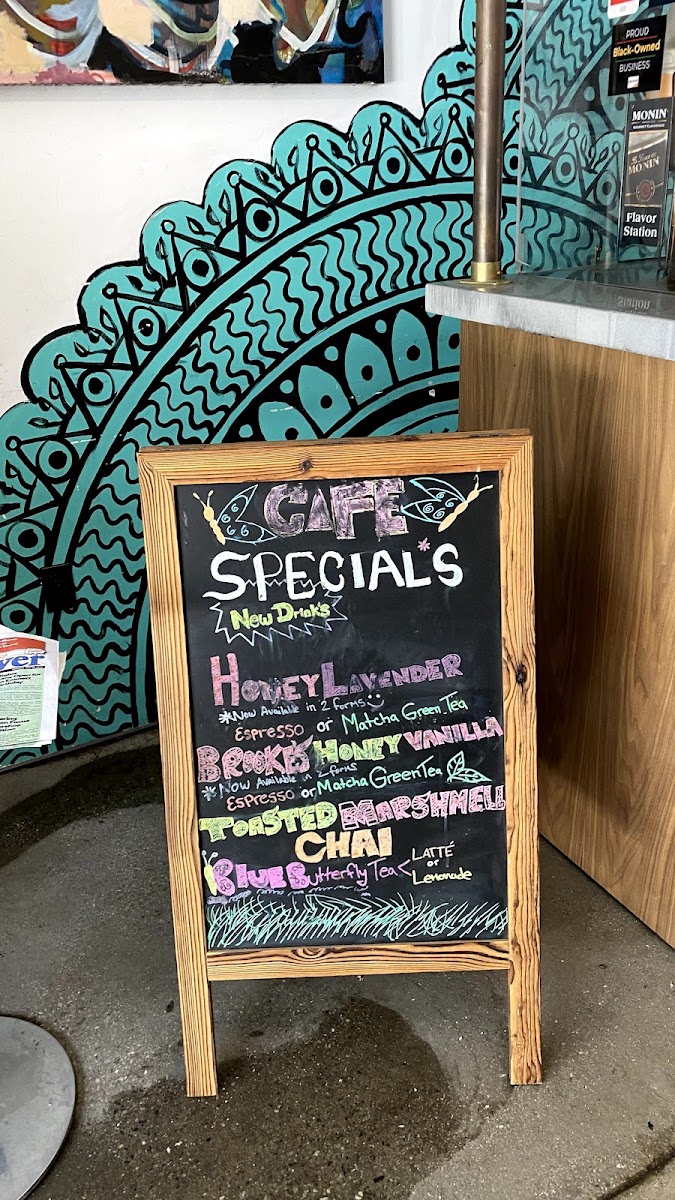 PROUD
Black-Owned
BUSINESS
MONIN
MONIN
Flavor
Station
CAFE
SPECIALS
New Drink's
HONEY LAVENDER
*Now Available in 2 forms
Espresso or Matcha Green Tea
BROOKE'S HONEY VANILLA
*Now Available in 2 forms
Espresso or Matcha Green Tea
TOASTED MARSHMELL
CHAI
BLUE Butterfly Tea < LATTÉ
or
Lemonade
yer